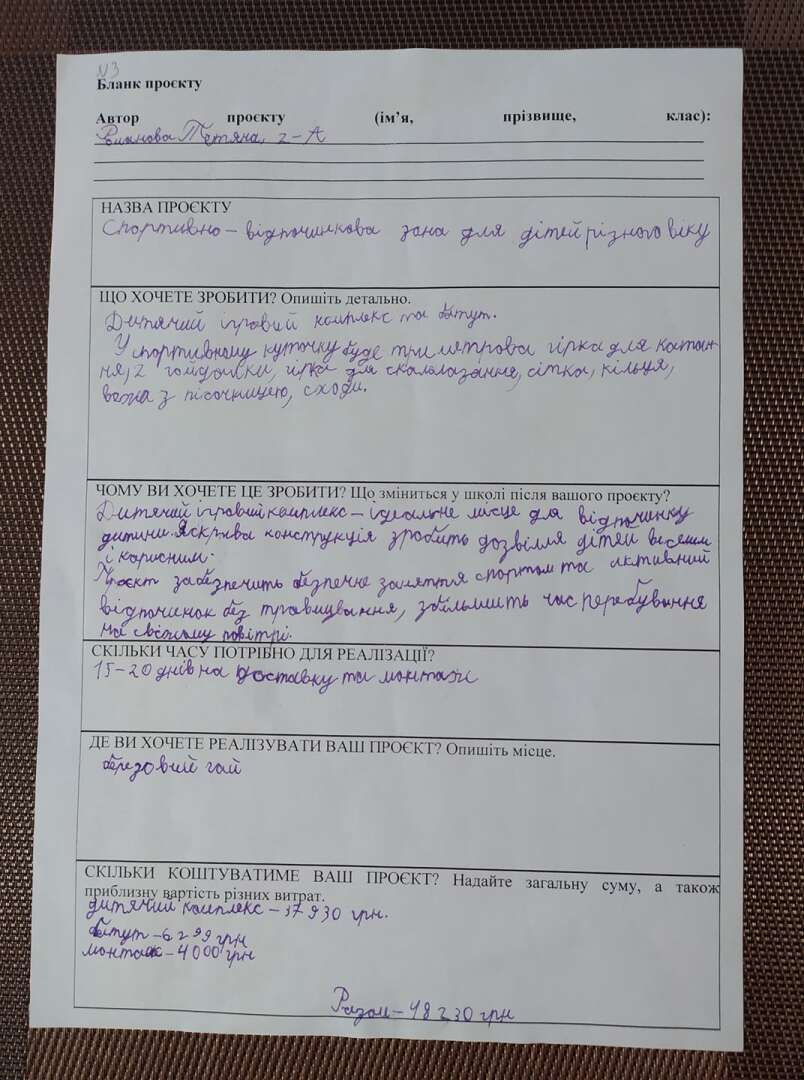 №3
Бланк проєкту
Автор проєкту (ім’я, прізвище, клас):
Романова Тетяна, 2-А
НАЗВА ПРОЄКТУ
Спортивно - відпочинкова зона для дітей різного віку
ЩО ХОЧЕТЕ ЗРОБИТИ? Опишіть детально.
Дитячий ігровий комплекс та батут.
У спортивному куточку буде три метрова гірка для катан-
ня, 2 гойдалки, гірка для скалолазання, сітка, кільця,
вежа з пісочницею, сходи.
ЧОМУ ВИ ХОЧЕТЕ ЦЕ ЗРОБИТИ? Що зміниться у школі після вашого проєкту?
Дитячий ігровий комплекс - ідеальне місце для відпочинку
дитини. Яскрива конструкція зробить дозвілля дітей веселим
і корисним.
Проєкт забезпечить безпечне заняття спортом та активний
відпочинок без травмування, збільшить час перебування
на свіжому повітрі.
СКІЛЬКИ ЧАСУ ПОТРІБНО ДЛЯ РЕАЛІЗАЦІЇ?
15-20 днів на доставку та монтаж
ДЕ ВИ ХОЧЕТЕ РЕАЛІЗУВАТИ ВАШ ПРОЄКТ? Опишіть місце.
березовий гай
СКІЛЬКИ КОШТУВАТИМЕ ВАШ ПРОЄКТ? Надайте загальну суму, а також
приблизну вартість різних витрат.
дитячий комплекс - 37930 грн.
батут - 6299 грн
монтаж - 4000 грн
Разом - 48230 грн